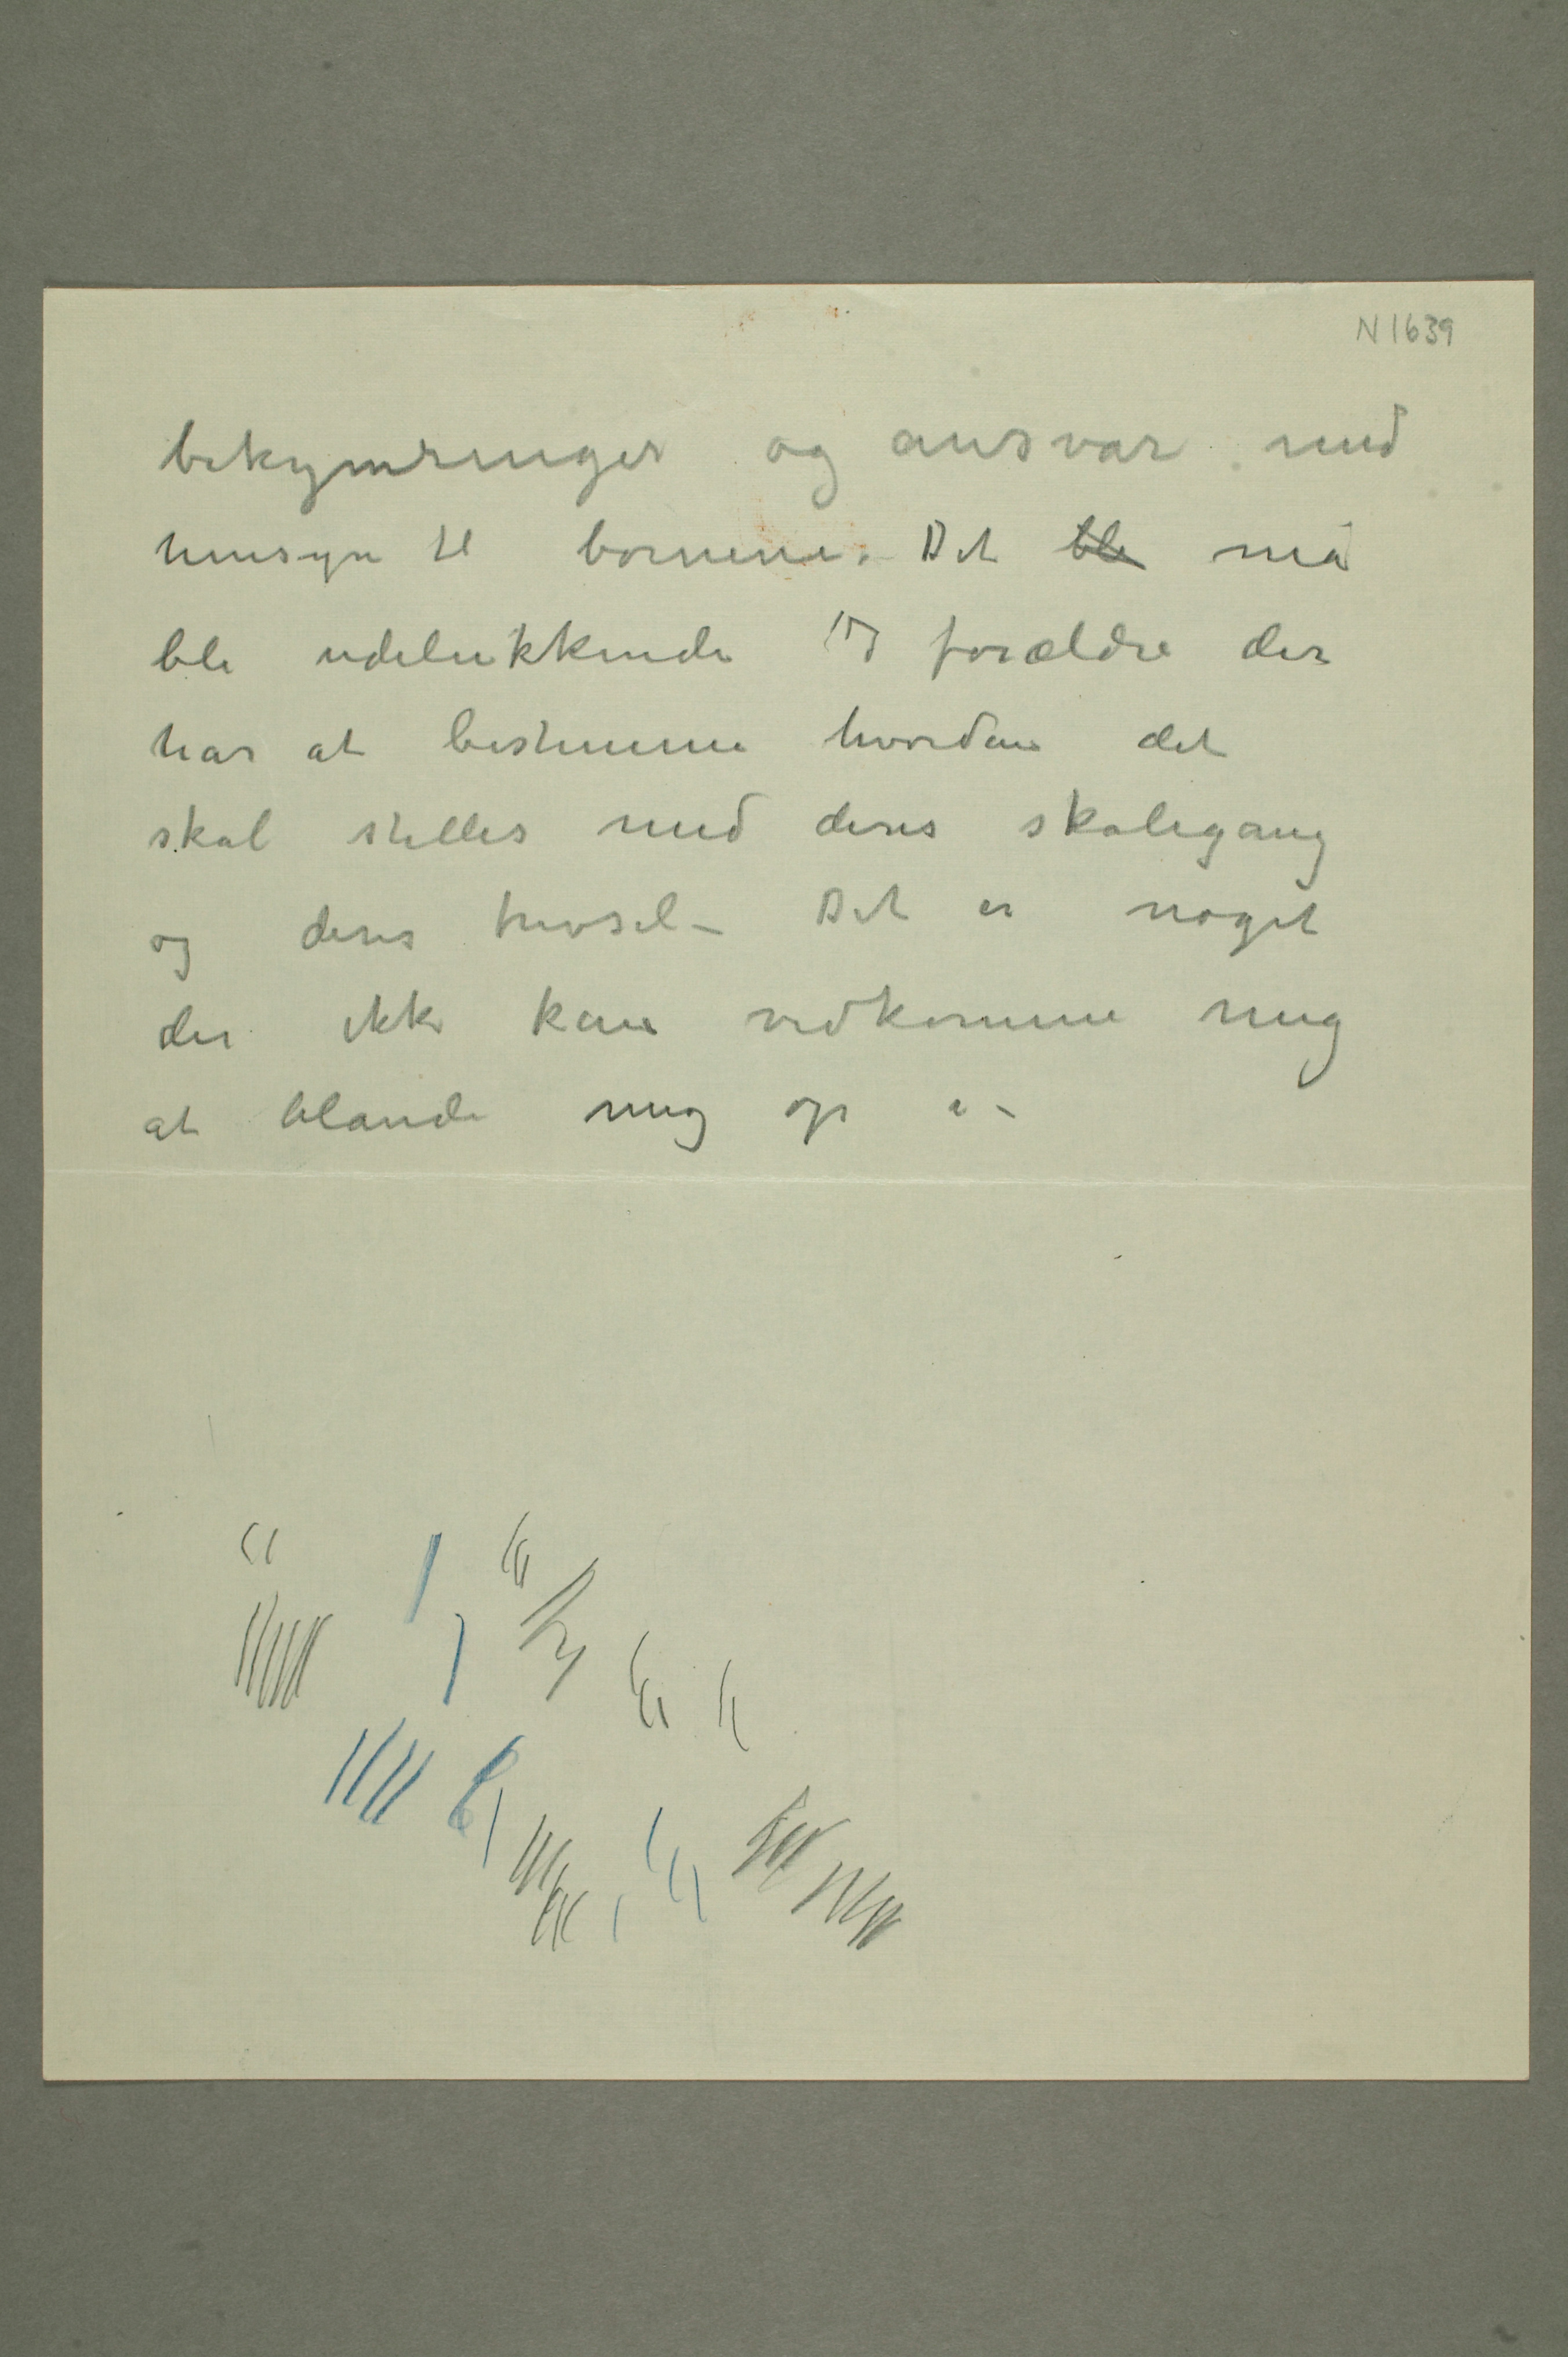 N 1639
bekymringer og ansvar med
hensyn til bornene. Det ble må
ble udelukkende forældre der
har at bestemme hvordan det
skal stelles med deres skolegang
og deres trivsel – Det er noget
der ikke kan vedkomme mig
at blande mig op i –